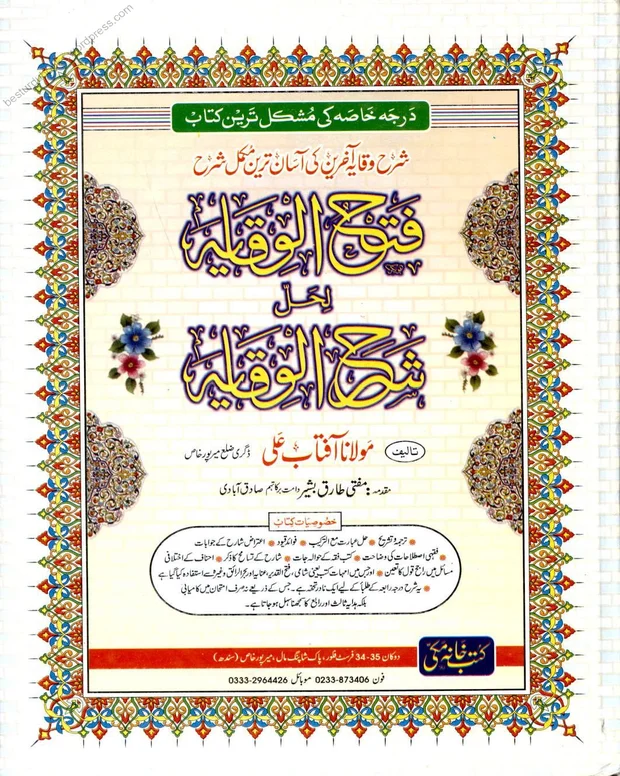 درجہ خاصہ کی مشکل ترین کتاب
شرح وقایہ آخرین کی آسان ترین مکمل شرح
فتح الوقایہ
لحل
شرح الوقایہ
تالیف مولانا آفتاب علی ڈگری ضلع میرپورخاص
مقدمہ: مفتی طارق بشیر دامت برکاتہم صادق آبادی
خصوصیات کتاب
ترجمہ و تشریح • حل عبارت مع الترکیب • فوائد قیود • اعتراض شارح کے جوابات
• فقہی اصطلاحات کی وضاحت • کتب فقہ کے حوالہ جات • شارح کے تسامح کا ذکر • احناف کے اختلافی
مسائل میں راجح قول کا تعین • اور جس میں امہات کتب یعنی شامی، فتح القدیر، عنایہ اور بحر الرائق وغیرہ سے استفادہ کیا گیا ہے
• یہ شرح درجہ رابعہ کے طلبا کے لیے ایک نادر تحفہ ہے۔ جس کے ذریعے نہ صرف امتحان میں کامیابی
بلکہ ہدایہ ثالث اور رابع کا سمجھنا سہل ہو جاتا ہے۔
کتب خانہ مکی
دوکان 35-34 فرسٹ فلور، پاک شاپنگ مال، میرپورخاص (سندھ)
فون 0233-873406 موبائل 0333-2964426